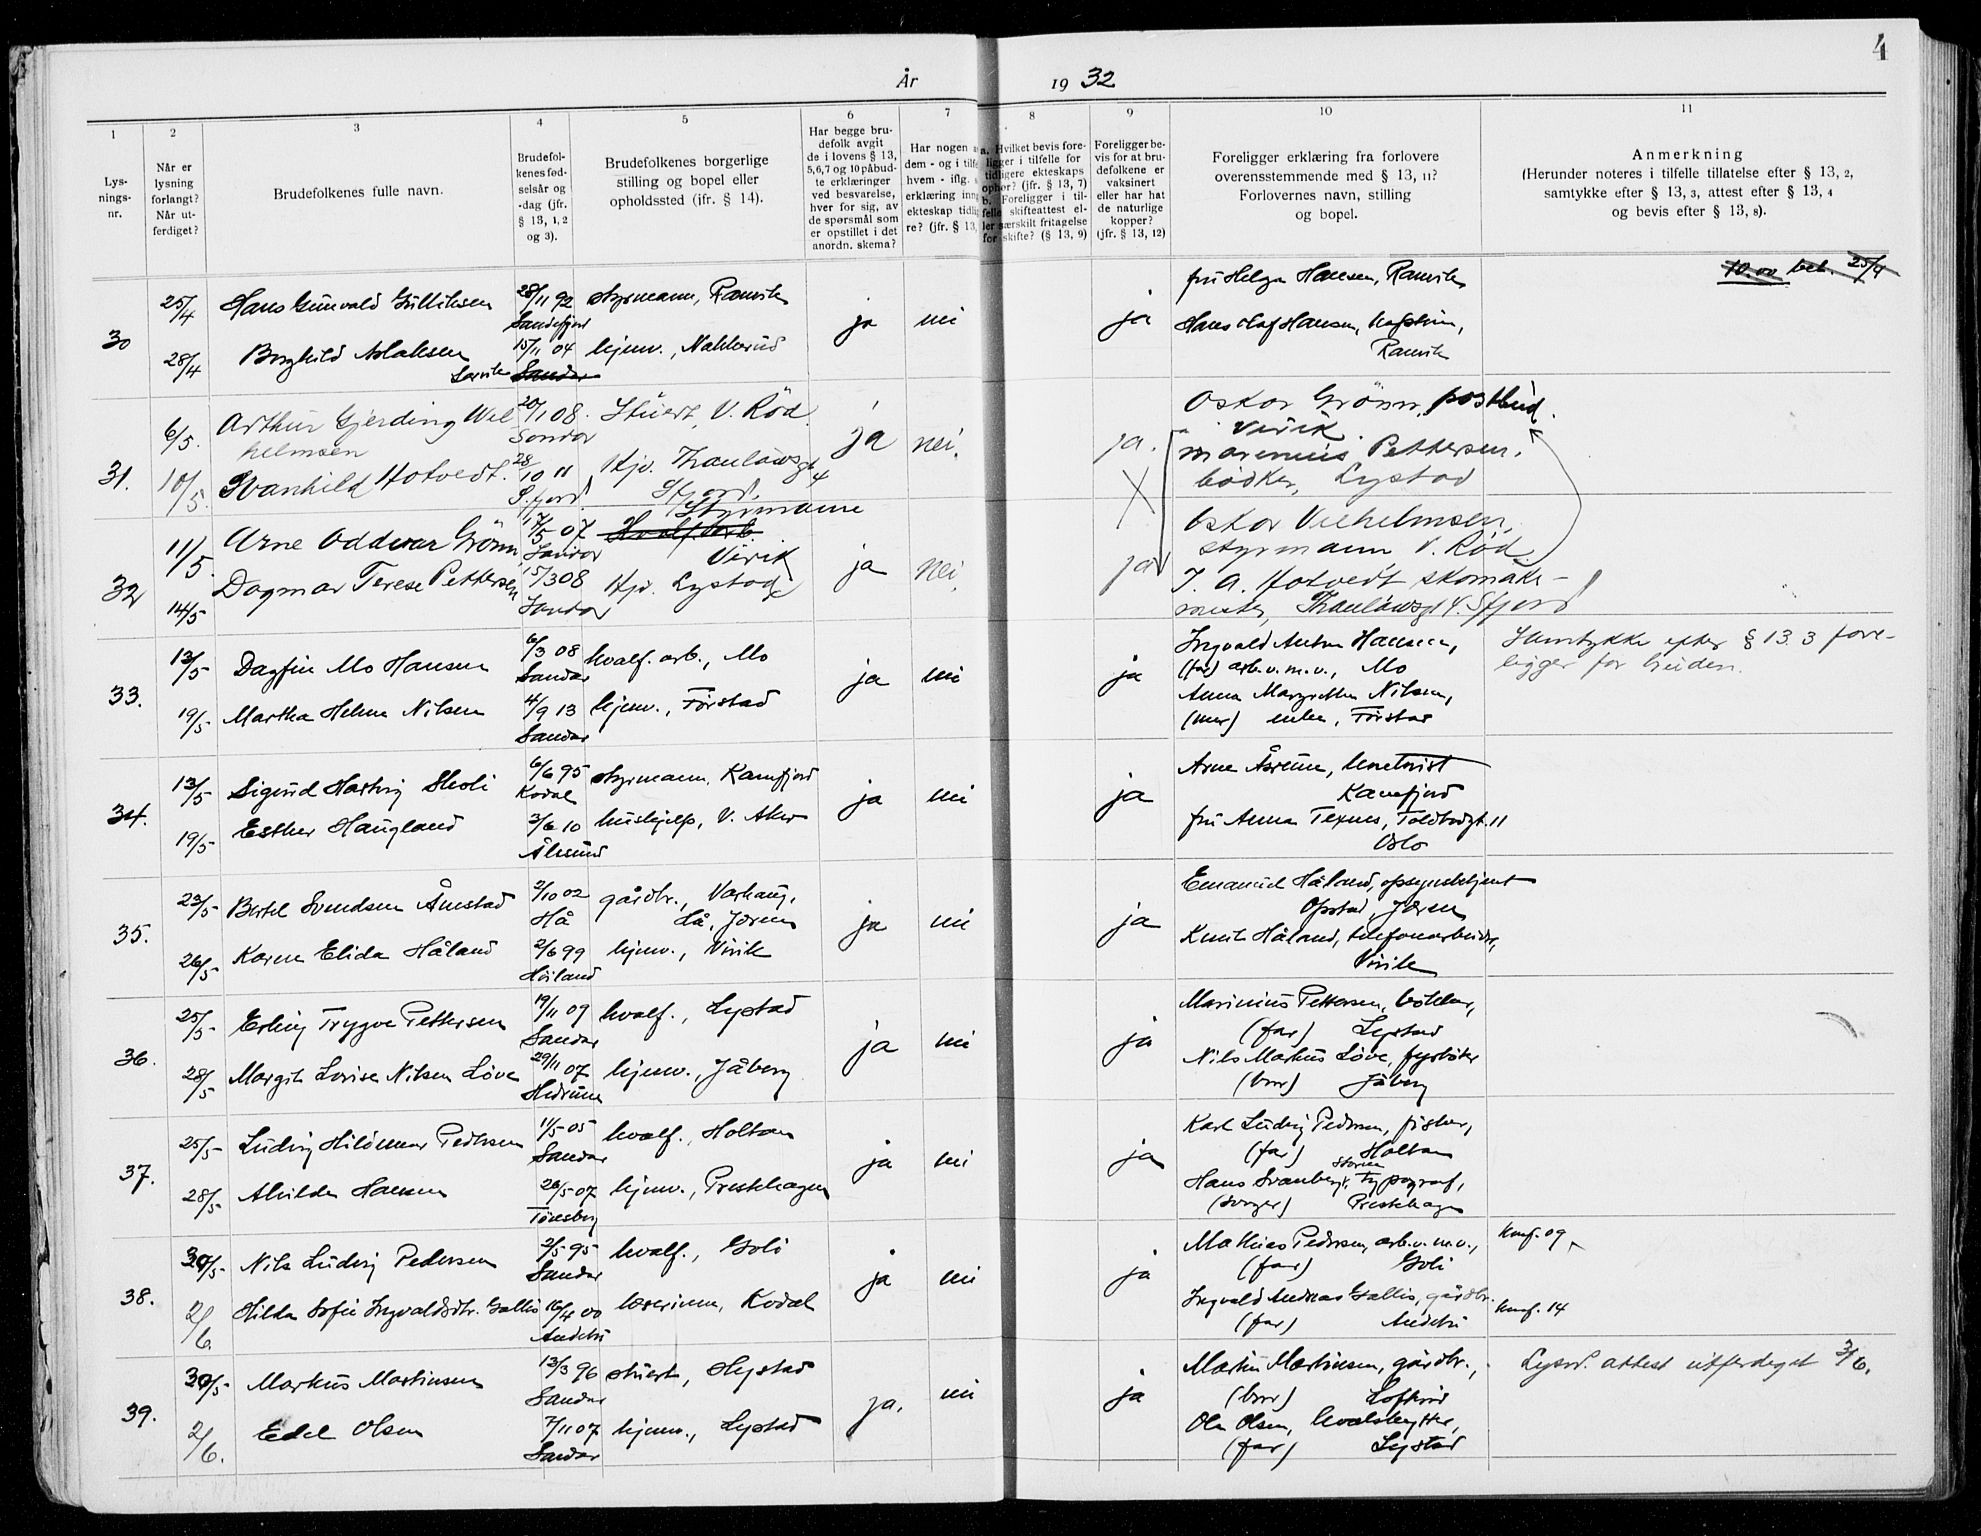 4
År 1932
1 2 3 4 5 6 7 8 9 10 11
Lys-
nings-
nr.
Når er
lysning
forlangt?
Når ut-
ferdiget?
Brudefolkenes fulle navn.
Brudefol-
kenes fød-
selsår og
-dag (jfr.
§ 13, 1, 2
og 3).
Brudefolkenes borgerlige
stilling og bopel eller
opholdssted (jfr. § 14).
Har begge bru-
defolk avgit
de i lovens § 13,
5,6,7 og 10 påbud-
te erklæringer
ved besvarelse,
hver for sig, av
de spørsmål som
er opstillet i det
anordn. skema?
Har nogen a
dem - og i tilfe
hvem - iflg.
erklæring inn
ekteskap tidli
re? (jfr. § 13,
a. Hvilket bevis fore-
ligger i tilfelle for
tidligere ekteskaps
ophør? (jfr. § 13, 7)
b. Foreligger i til-
felle skifteattest el-
ler særskilt fritagelse
for skifte? (§ 13, 9)
Foreligger be-
vis for at bru-
defolkene er
vaksinert
eller har hat
de naturlige
kopper?
(jfr. § 13, 12)
Foreligger erklæring fra forlovere
overensstemmende med § 13, 11?
Forlovernes navn, stilling
og bopel.
Anmerkning
(Herunder noteres i tilfelle tillatelse efter § 13, 2,
samtykke efter § 13, 3, attest efter § 13, 4
og bevis efter § 13, 8).
30 25/4 Hans Gunvald Gulliksen 28/11 92 styrmann, Ranvik ja nei ja fru Helga Hansen, Ranvik 10.00 bet. 25/4
Sandefjord Hans Olaf Hansen,
28/4 Borghild Aslaksen 15/11 04 hjemv., Nakkerud Ranvik
Larvik Sandar
31. 6/5. Arthur Gjerding Wil 20/1 08. Stuert, V. Rød ja nei. ja. Oskar Grönn, postbud.
helmsen Sandar Virik
10/5. Svanhild Hotvedt. 28/10 11 Hjv. Thaulowsgt 4 X marenius Pettersen.
S.fjord Sfjord. bødker, Lystad
32 11/5. Arne Oddvar Grönn 17/5 07 Hvalf.arb. Styrmann ja nei. ja Oskar Vilhelmsen,
Sandar Virik styrmann V. Rød
14/5 Dagmar Terese Pettersen 15/3 08 Hjv. Lystad J. A. Hotvedt skomak-
Sandar mester, Thaulowsgt 4. Sfjord
33. 13/5 Dagfin Mo Hansen 6/3 08 hvalf. arb., Mo ja nei ja Ingvald Anton Hansen, Samtykke efter § 13 3 fore-
Sandar (far) arb.v.m.v., Mo ligger for bruden.
19/5 Martha Helene Nilsen 4/9 13 hjemv., Førstad Anna Margrethe Nilsen,
Sandar (mor) enke, Førstad
34. 13/5 Sigurd Hartvig Skoli 6/6 95 styrmann, Kamfjord ja nei ja Arne Åsrum,
Kodal Kamfjord
19/5 Esther Haugland 3/6 10 hushjelp, V. Aker fru Anna Texnes, Toldbodgt. 11
Ålesund Oslo
35. 23/5 Bertel Svendsen Ånestad 2/10 02 gårdbr., Varhaug, ja nei ja Emanuel Håland, opsynsbetjent
Hå Hå, Jæren Opstad, Jæren
26/5 Karen Elida Håland 2/6 99 hjemv., Virik Knut Håland, telefonarbeider,
Høiland Virik
36. 25/5 Erling Trygve Pettersen 19/11 09 hvalf., Lystad ja nei ja Marinius Pettersen, bøkker,
Sandar (far) Lystad
28/5 Margit Lovise Nilsen Løve 29/11 07 hjemv., Jåberg Nils Markus Løve, fyrbøter
Hedrum (bror) Jåberg
37. 25/5 Ludvig Hildemar Pedersen 11/5 05 hvalf., Holtan ja nei ja Karl Ludvig Pedersen, fisker,
Sandar (far) Holtan
28/5 Alvilde Hansen 26/5 07 hjemv., Prestehagen Hans Svanberg Storm, typograf,
Tønsberg (svoger) Prestehagen
38. 30/5 Nils Ludvig Pedersen 2/5 95 hvalf., Goli ja nei ja Mathias Pedersen, arb.v.m.v., konf. 09
Sandar (far) Goli
2/6. Hilda Sofie Ingvaldsdtr. Gallis 16/4 00 lærerinne, Kodal Ingvald Andreas Gallis, gårdbr. konf. 14
Andebu (far) Andebu
39. 30/5 Markus Martinsen 13/3 96 stuert, Lystad ja. nei ja Martin Martinsen, gårdbr., Lysn. attest utferdiget 3/6.
Sandar (bror) Loftsrød
2/6. Edel Olsen 7/11 07 hjemv., Lystad Ole Olsen, hvalskytter,
Sandar (far) Lystad